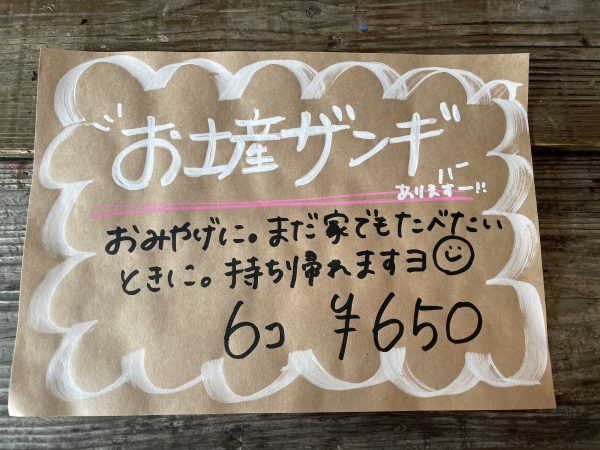 "お土産ザンギ"
ありますー!!
おみやげに。まだ家でもたべたい
ときに。持ち帰れますヨ
6コ ¥650